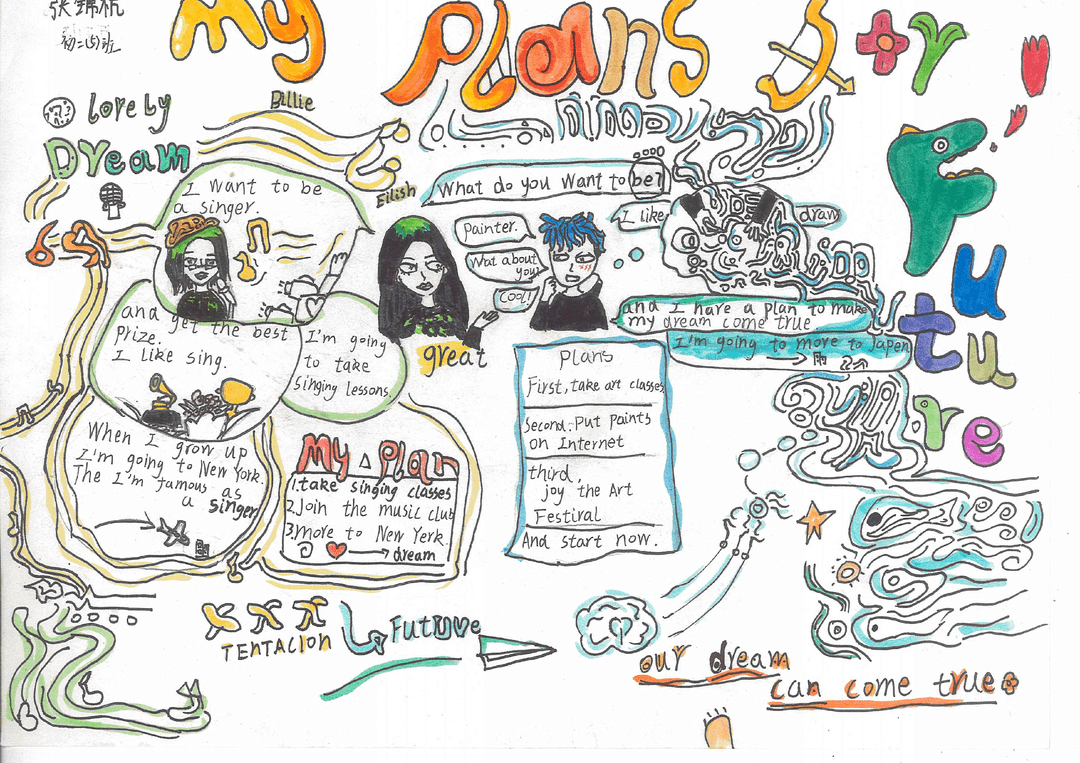 初二四班
My Plans for Future
lovely
Dream
Billie
Eilish
I want to be
a singer.
and get the best
prize.
I like sing.
I'm going
to take
singing lessons.
When I grow up
I'm going to New York.
The I'm famous as
a singer
My Plan
1.take singing classes
2Join the music club
3more to New Yerk.
dream
great
What do you want to be?
Painter.
Wat about
you?
Cool!
I like
draw
and I have a plan to make
my dream come true
I'm going to more to Japen
Plans
First, take art classes
Second. Put paints
on Internet
third,
joy the Art
Festiral
And start now.
XXX
TENTACION
Future
our dream
can come true